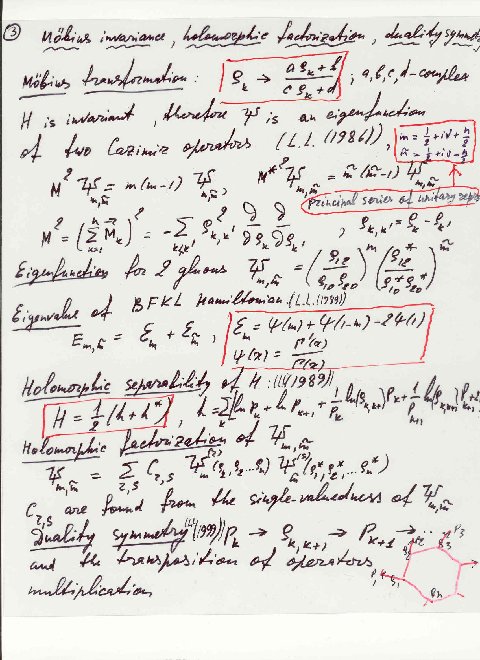 3 Möbius invariance, holomorphic factorization, duality symmet
Möbius transformation: ρ_k → (aρ_k + b)/(cρ_k + d) ; a,b,c,d-complex
H is invariant, therefore Ψ is an eigenfunction
of two Cazimir operators (L.L. (1986)), m = 1/2 + iν + n/2
m̃ = 1/2 + iν - n/2
M² Ψ_{m,m̃} = m(m-1) Ψ_{m,m̃}, M*² Ψ_{m,m̃} = m̃(m̃-1) Ψ_{m,m̃}
principal series of unitary repr
M² = (Σ_{k=1}^n M⃗_k)² = -Σ_{k,k'} ρ²_{k,k'} ∂/∂ρ_k ∂/∂ρ_k' , ρ_{k,k'} = ρ_k - ρ_k'
Eigenfunction for 2 gluons Ψ_{m,m̃} = (ρ_12/(ρ_10 ρ_20))^m (ρ*_12/(ρ*_10 ρ*_20))^m̃
Eigenvalue of BFKL Hamiltonian: (L.L. (1989))
E_{m,m̃} = ε_m + ε_m̃ , ε_m = ψ(m) + ψ(1-m) - 2ψ(1)
ψ(x) = Γ'(x)/Γ(x)
Holomorphic separability of H: (1989)
H = 1/2 (h + h*) , h = Σ_k [ln p_k + ln p_{k+1} + 1/p_k ln(ρ_{k,k+1}) p_k + 1/p_{k+1} ln(ρ_{k,k+1}) p_{k+1}
Holomorphic factorization of Ψ_{m,m̃}
Ψ_{m,m̃} = Σ_{r,s} C_{r,s} Ψ_m^{(r)}(ρ_1, ρ_2 ... ρ_n) Ψ_m̃^{(s)}(ρ_1*, ρ_2*, ... ρ_n*)
C_{r,s} are found from the single-valuedness of Ψ_{m,m̃}
Duality symmetry (1999) p_k → ρ_{k,k+1} → p_{k+1} → ...
and the transposition of operators
multiplication